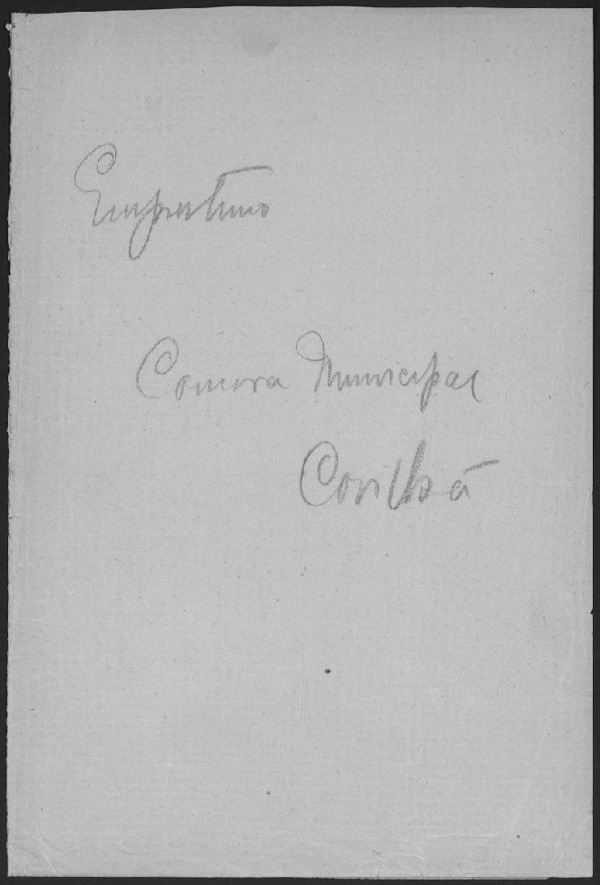 Emprestimo
Camara Municipal
Covilhã